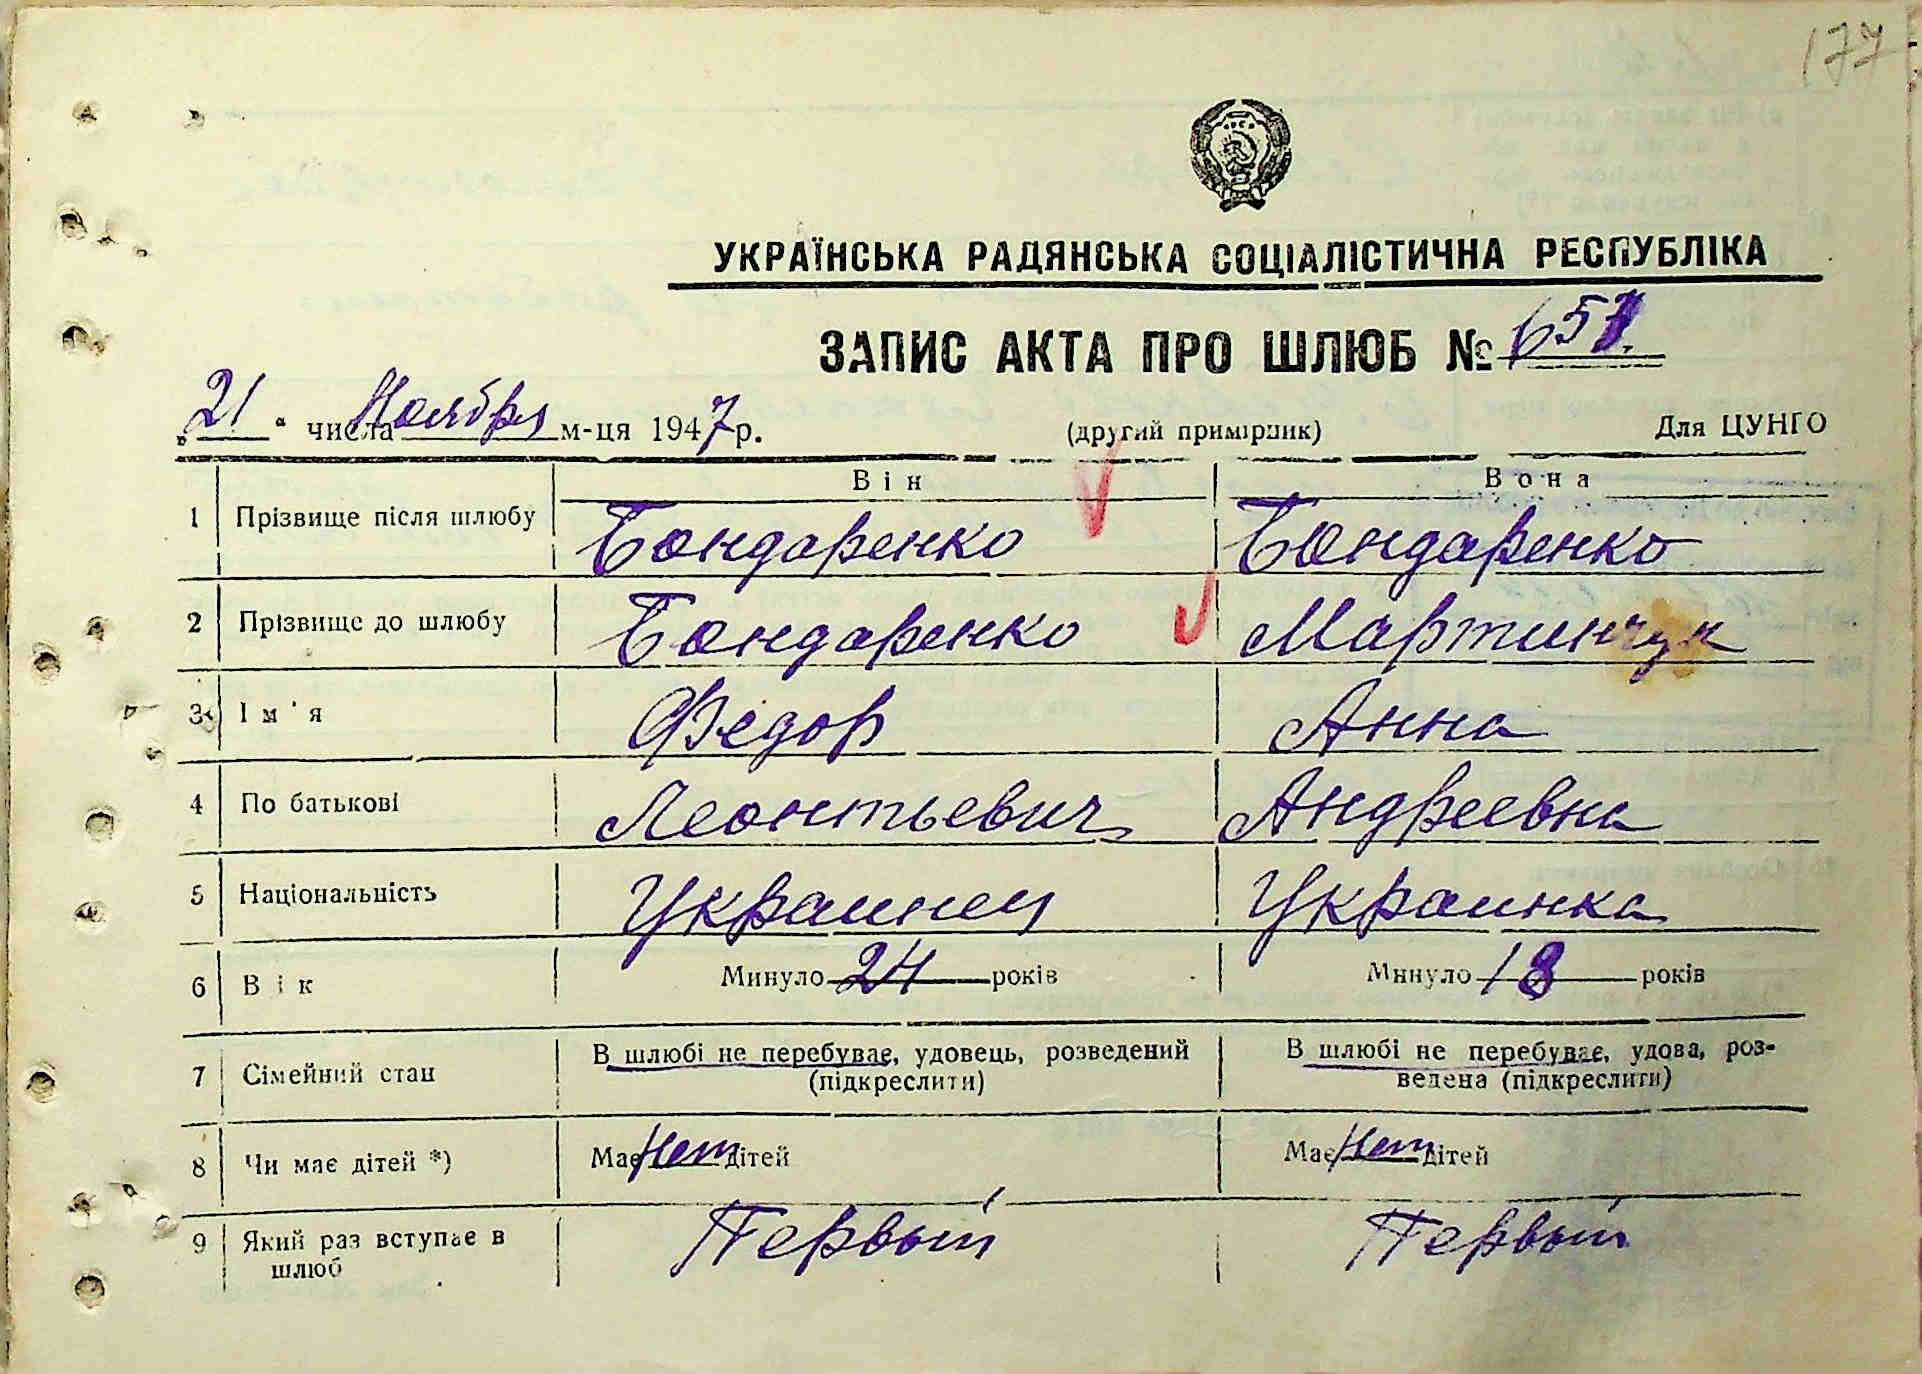 177
УКРАЇНСЬКА РАДЯНСЬКА СОЦІАЛІСТИЧНА РЕСПУБЛІКА
ЗАПИС АКТА ПРО ШЛЮБ № 657.
„21“ числа Ноября м-ця 1947 р. (другий примірник) Для ЦУНГО
Він Вона
1 Прізвище після шлюбу Бондаренко Бондаренко
2 Прізвище до шлюбу Бондаренко Мартинчук
3 Ім'я Федор Анна
4 По батькові Леонтьевич Андреевна
5 Національність Украинец Украинка
6 Вік Минуло 24 років Минуло 18 років
7 Сімейний стан В шлюбі не перебуває, удовець, розведений (підкреслити) В шлюбі не перебуває, удова, роз-
ведена (підкреслити)
8 Чи має дітей *) Має Нет дітей Має Нет дітей
9 Який раз вступає в шлюб Первый Первый